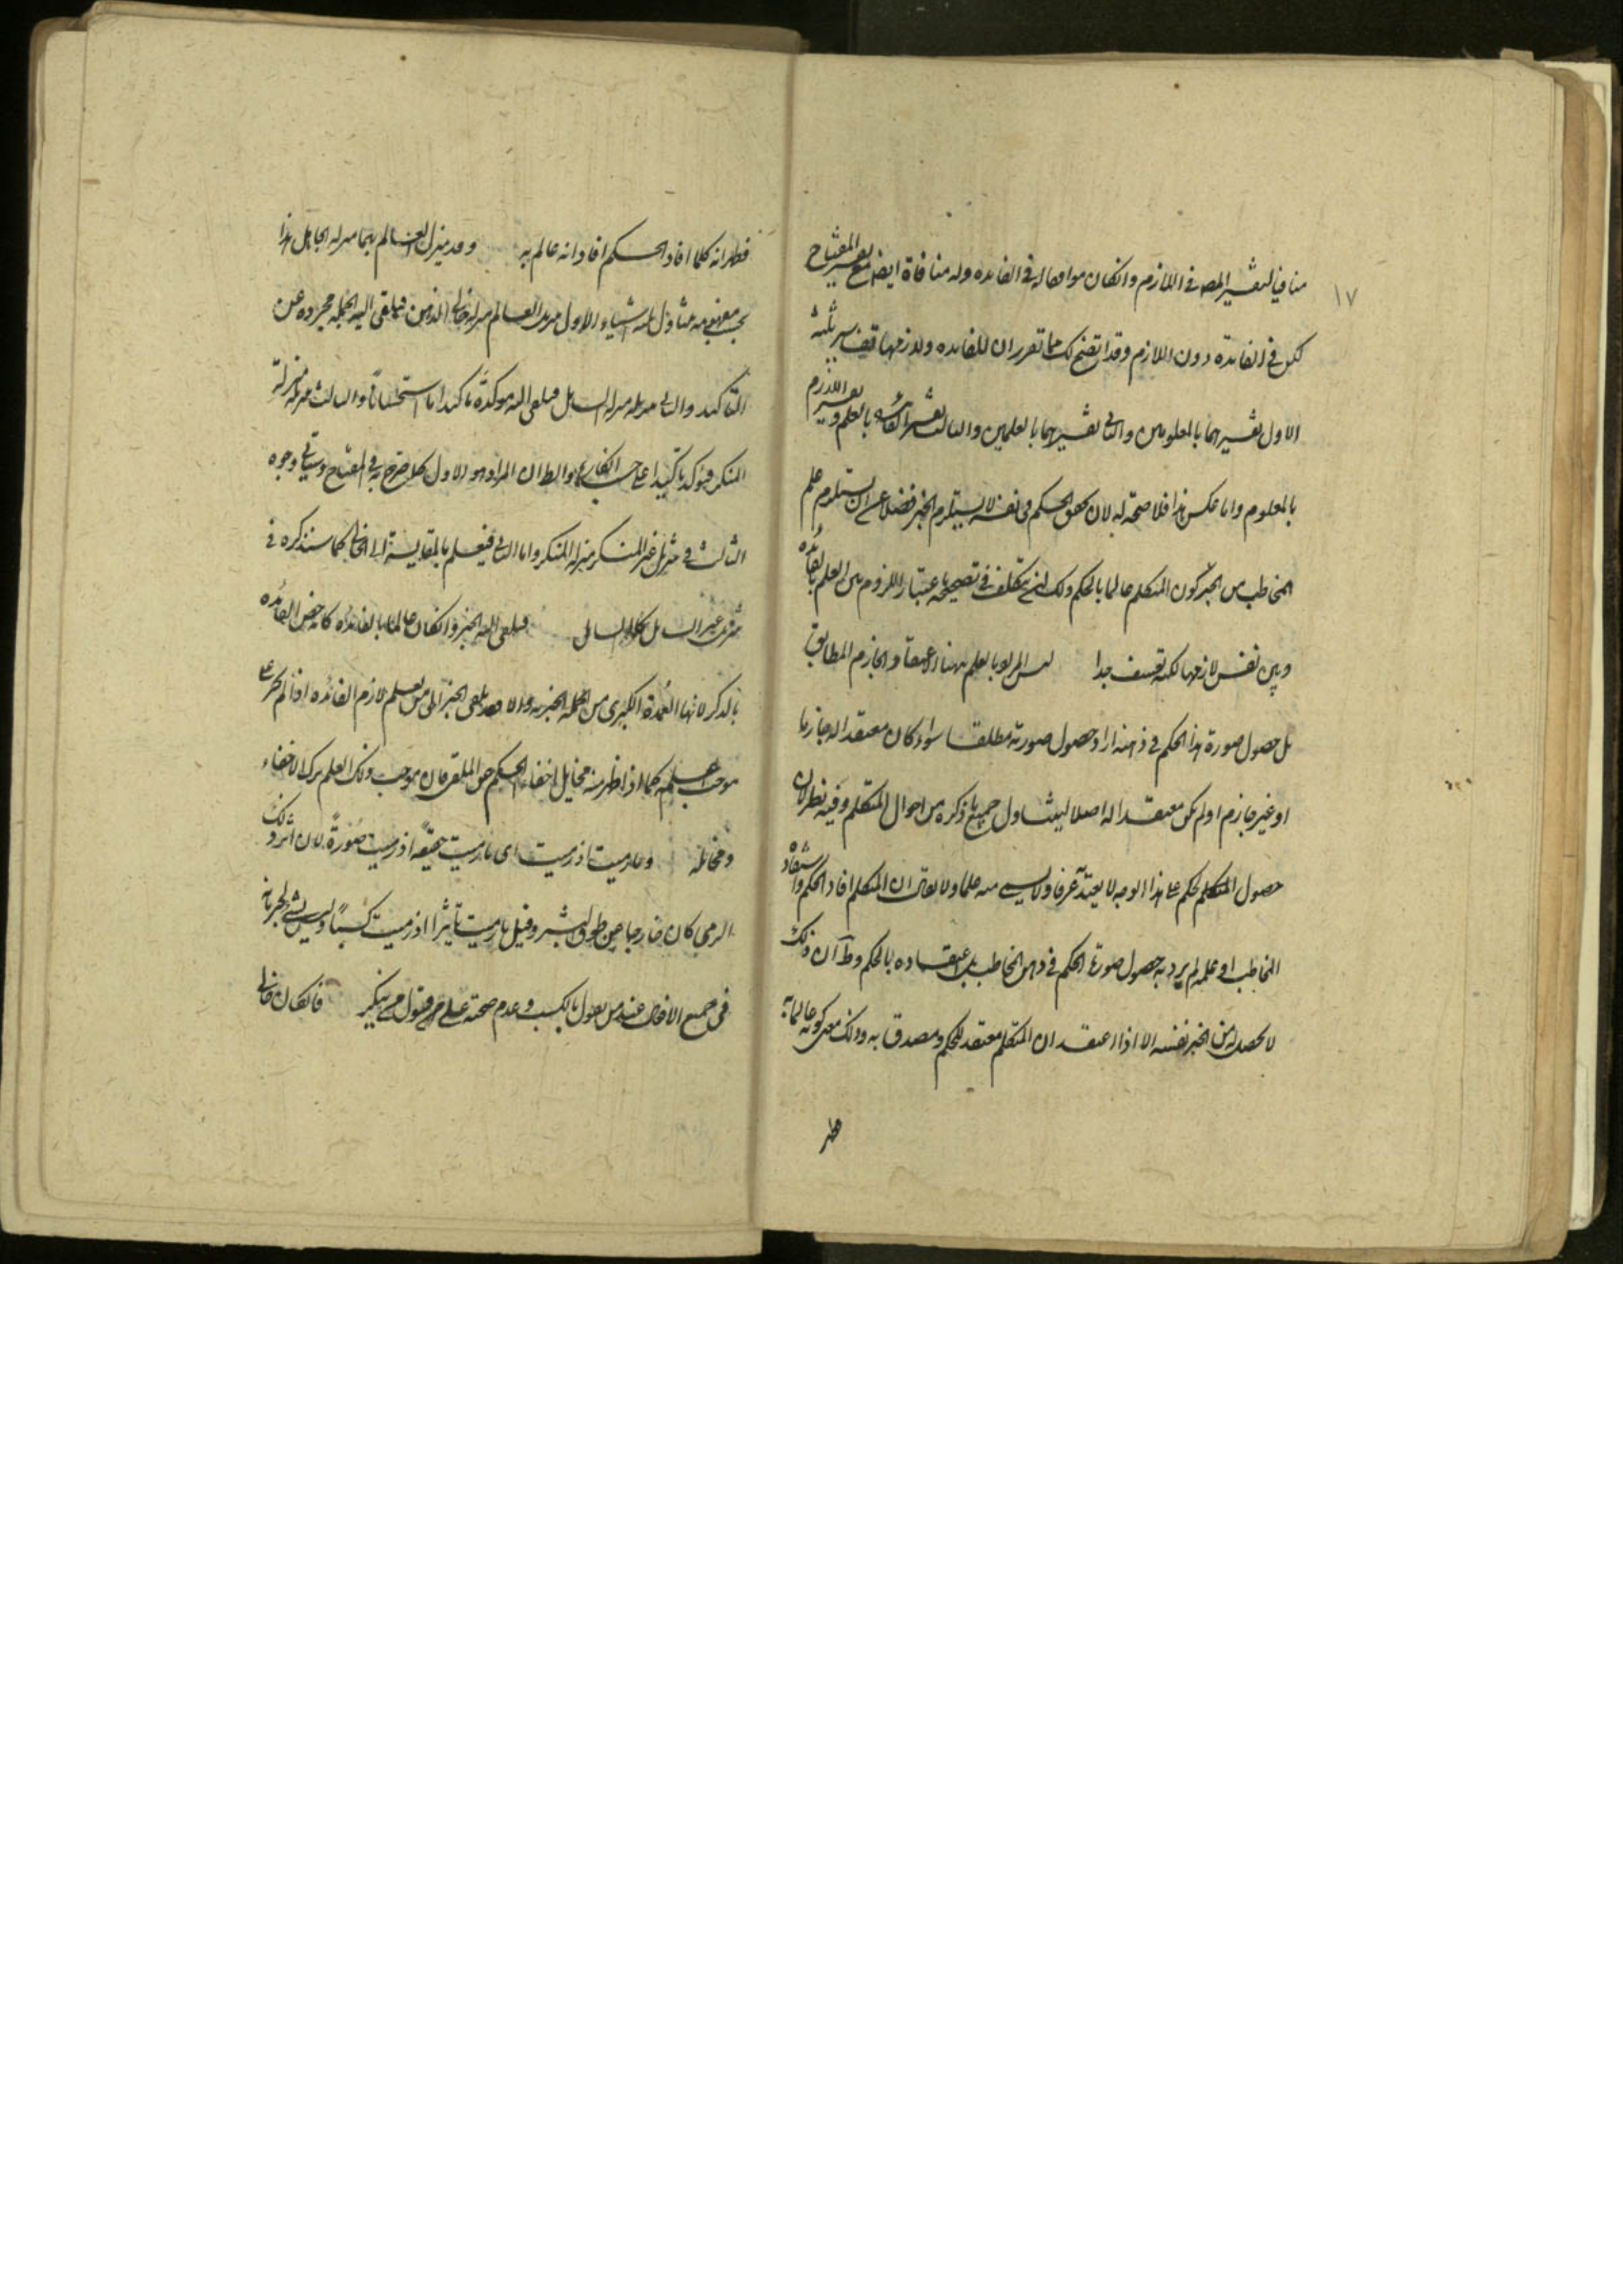 ١٧
منافيا لتفسير المص في اللازم وانكان موافقا له في الفايده وله منافاة ايضا مع تفسير المفتاح
لكن في الفايدة دون اللازم وقد اتضح لك مما تقرر ان للفايده ولازمها تفاسير ثلثة
الاول تفسيرهما بالمعلومين والثاني تفسيرهما بالعلمين والثالث تفسير الفائدة بالعلم وتفسير اللازم
بالمعلوم واما عكس هذا فلا صحة له لان تحقق الحكم في نفسه لا يستلزم الخبر فضلا عن ان يستلزم علم
المخاطب من الخبر كون المتكلم عالما بالحكم ولك ان تتكلف في تصحيحه باعتبار اللزوم بين العلم بالفائده
وبين نفس لازمها لكنه تعسف جدا ليس المراد بالعلم ههنا الاعتقاد الجازم المطابق
بل حصول صورة هذا الحكم في ذهنه اراد حصول صورته مطلقا سواء كان معتقدا له جازما
او غير جازم او لم يكن معتقدا له اصلا ليتناول جميع ما ذكره من احوال المتكلم وفيه نظر لان
حصول المتكلم لحكم على هذا الوجه لا يعتد به عرفا ولا يسمى منه علما ولا يقال ان المتكلم افاد الحكم واستفاد
المخاطب او علمه لم يرد به حصول صورة الحكم في ذهن المخاطب بل اعتقاده بالحكم وظ ان ذلك
لا يحصل له من الخبر نفسه الا اذا اعتقد ان المتكلم معتقد للحكم ومصدق به وذلك معنى كونه عالما به
فظهر
فظهر انه كلما افاد الحكم افاد انه عالم به وقد ينزل العالم بهما منزلة الجاهل هذا
بحسب مفهومه متناول ثلثة اشياء الاول تنزيل العالم منزلة خالي الذهن فيلقى اليه الجملة مجرده عن
التاكيد والثاني تنزيله منزلة السايل فيلقى اليه مؤكدة تاكيدا استحسانا والثالث تنزيله منزلة
المنكر فيؤكد تاكيدا على حسب انكاره والظ ان المراد هو الاول كما صرح به في المفتاح وسيأتي وجوه
الثالث في تنزيل غير المنكر منزلة المنكر واما الثاني فيعلم بالمقايسة الى الخالي كما سنذكره في
تنزيل غير السايل منزلة السايل فيلقى اليه الخبر وانكان عالما بالفائده كانه خص الفائده
بالذكر لانها العمدة الكبرى من الجملة الخبرية والا فقد يلقى الخبر الى من يعلم لازم الفائده اذا لم يجر على
موجب علمه كما اذا ظهر منه مخايل اخفاء الحكم عن الملقى فان موجب ذلك العلم ترك الاخفاء
ومخايله وما رميت اذ رميت اى ما رميت حقيقة اذ رميت صورة لان اثر ذلك
الرمى كان خارجا عن طوق البشر وقيل ما رميت تأثيرا اذ رميت كسبا وليس بشئ لجريانه
في جميع الافعال عند من يقول بالكسب وعدم صحته على قول من ينكر فانكان خالي